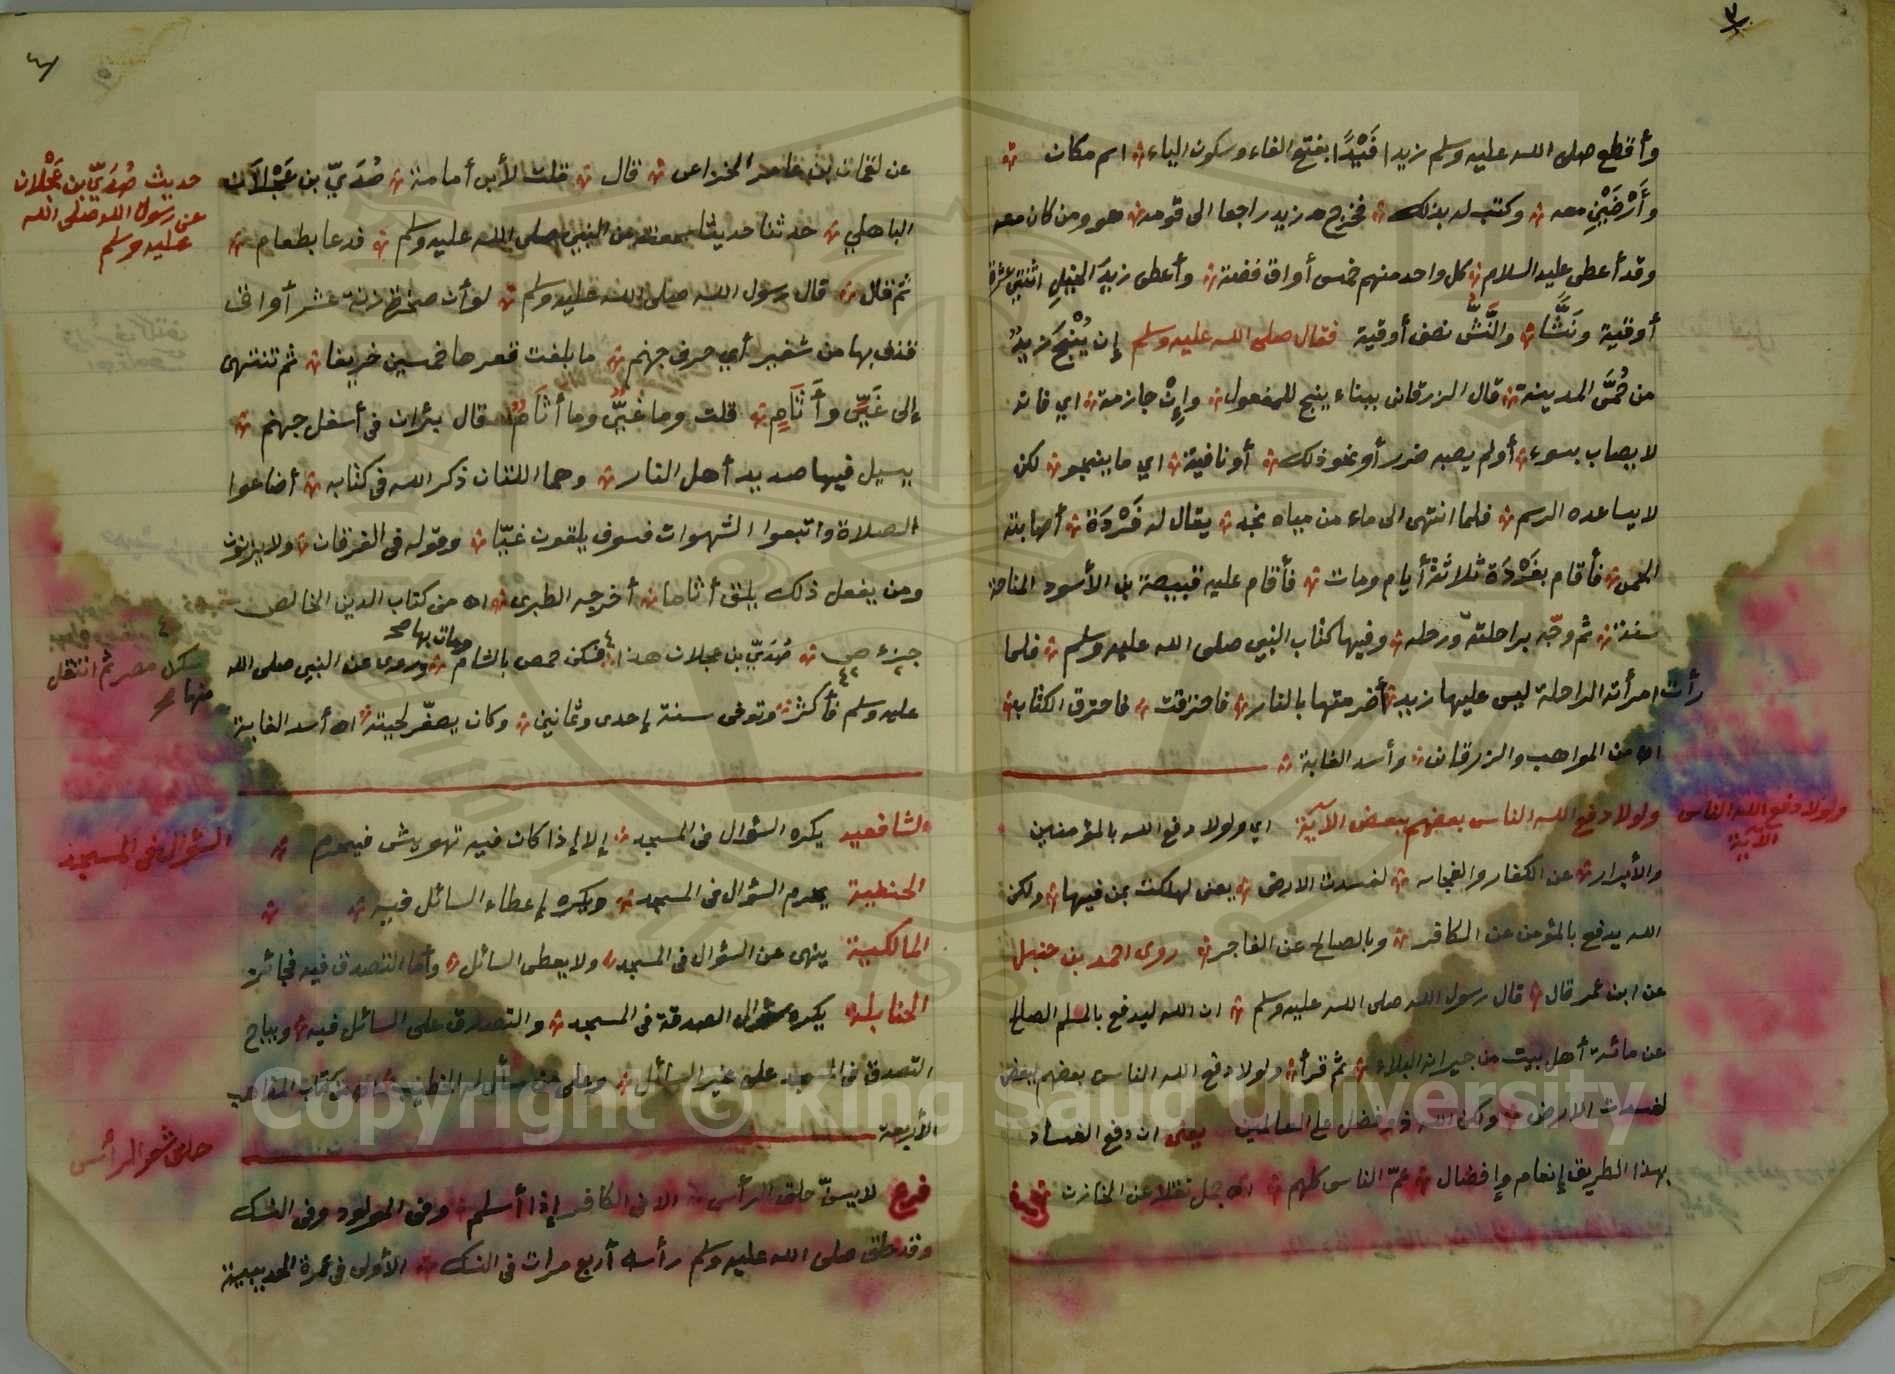 ٣
وأقطع صلى الله عليه وسلم زيدا فَيْدًا بفتح الفاء وسكون الياء اسم مكان
وأَرْضَيْنِ معه وكتب له بذلك فخرج زيد راجعا الى قومه هو ومن كان معه
وقد أعطى عليه السلام كل واحد منهم خمس أواق فضة وأعطى زيدَ الخيلِ اثنتي عشرة
أوقية ونَشًّا والنَّشُّ نصف أوقية فقال صلى الله عليه وسلم إن يُنْجَ زيدٌ
من حُمَّى المدينة قال الزرقاني ببناء ينج للمفعول وإِنْ جازمة اي فانه
لا يصاب بسوء أو لم يصبه ضرر أو نحو ذلك أو نافية اي ما ينجو لكن
لا يساعده الرسم فلما انتهى الى ماء من مياه نجد يقال له فَرْدَة أصابته
الحمى فأقام بفَرْدَة ثلاثة أيام ومات فأقام عليه قبيصة بن الأسود المناحة
سنة ثم وجّه براحلته ورحله وفيها كتاب النبي صلى الله عليه وسلم فلما
رأت امرأته الراحلة ليس عليها زيد أضرمتها بالنار فاحترقت فاحترق الكتاب
اه من المواهب والزرقاني وأسد الغابة
ولولا دفع الله الناس
الآية
ولولا دفع الله الناس بعضهم ببعض الآية اي ولولا دفع الله بالمؤمنين
والأبرار عن الكفار والفجار لفسدت الارض يعني لهلكت بمن فيها ولكن
الله يدفع بالمؤمن عن الكافر وبالصالح عن الفاجر روى احمد بن حنبل
عن ابن عمر قال قال رسول الله صلى الله عليه وسلم ان الله ليدفع بالمسلم الصالح
عن مائة أهل بيت من جيرانه البلاء ثم قرأ ولولا دفع الله الناس بعضهم ببعض
لفسدت الارض ولكن الله ذو فضل على العالمين يعني ان دفع الفساد
بهذا الطريق إنعام وإفضال عمّ الناس كلهم اه جمل نقلا عن الخازن
٤
حديث صُدَيّ بن عَجْلان
عن رسول الله صلى الله
عليه وسلم
عن لقمان بن عامر الخزاعي قال قلت لأبي أمامة صُدَيّ بن عَجْلَان
الباهلي حدثنا حديثا سمعته من النبي صلى الله عليه وسلم فدعا بطعام
ثم قال قال رسول الله صلى الله عليه وسلم لو أن صخرة زنة عشر أواق
قذف بها من شفير أي حرف جهنم ما بلغت قعرها خمسين خريفا ثم تنتهي
إلى غَيٍّ وأَثَامٍ قلت وما غَيٌّ وما أَثَامٌ قال بئران في أسفل جهنم
يسيل فيها صديد أهل النار وهما اللتان ذكر الله في كتابه أضاعوا
الصلاة واتبعوا الشهوات فسوف يلقون غيّا وقوله في الفرقان ولا يزنون
ومن يفعل ذلك يلق أثاما أخرجه الطبري اه من كتاب الدين الخالص
جزء ٢ ص ٤٢ صُدَيّ بن عجلان هذا فسكن حمص بالشام ومات بها صح وروى عن النبي صلى الله
سكن مصر ثم انتقل
منها
عليه وسلم فأكثر وتوفي سنة إحدى وثمانين وكان يصفّر لحيته اه أسد الغابة
السؤال في المسجد
الشافعية يكره السؤال في المسجد إلا إذا كان فيه تهويش فيحرم
الحنفية يحرم السؤال في المسجد ويكره إعطاء السائل فيه
المالكية ينهى عن السؤال في المسجد ولا يعطى السائل وأما التصدق فيه فجائز
الحنابلة يكره سؤال الصدقة في المسجد والتصدق على السائل فيه ويباح
التصدق في المسجد على غير السائل وعلى من سأل له الخطيب اه من كتاب المذاهب
الأربعة
حلق شعر الرأس
فرع لا يسنّ حلق الرأس الا في الكافر إذا أسلم وفي المولود وفي النسك
وقد حلق صلى الله عليه وسلم رأسه أربع مرات في النسك الأولى في عمرة الحديبية
Copyright © King Saud University